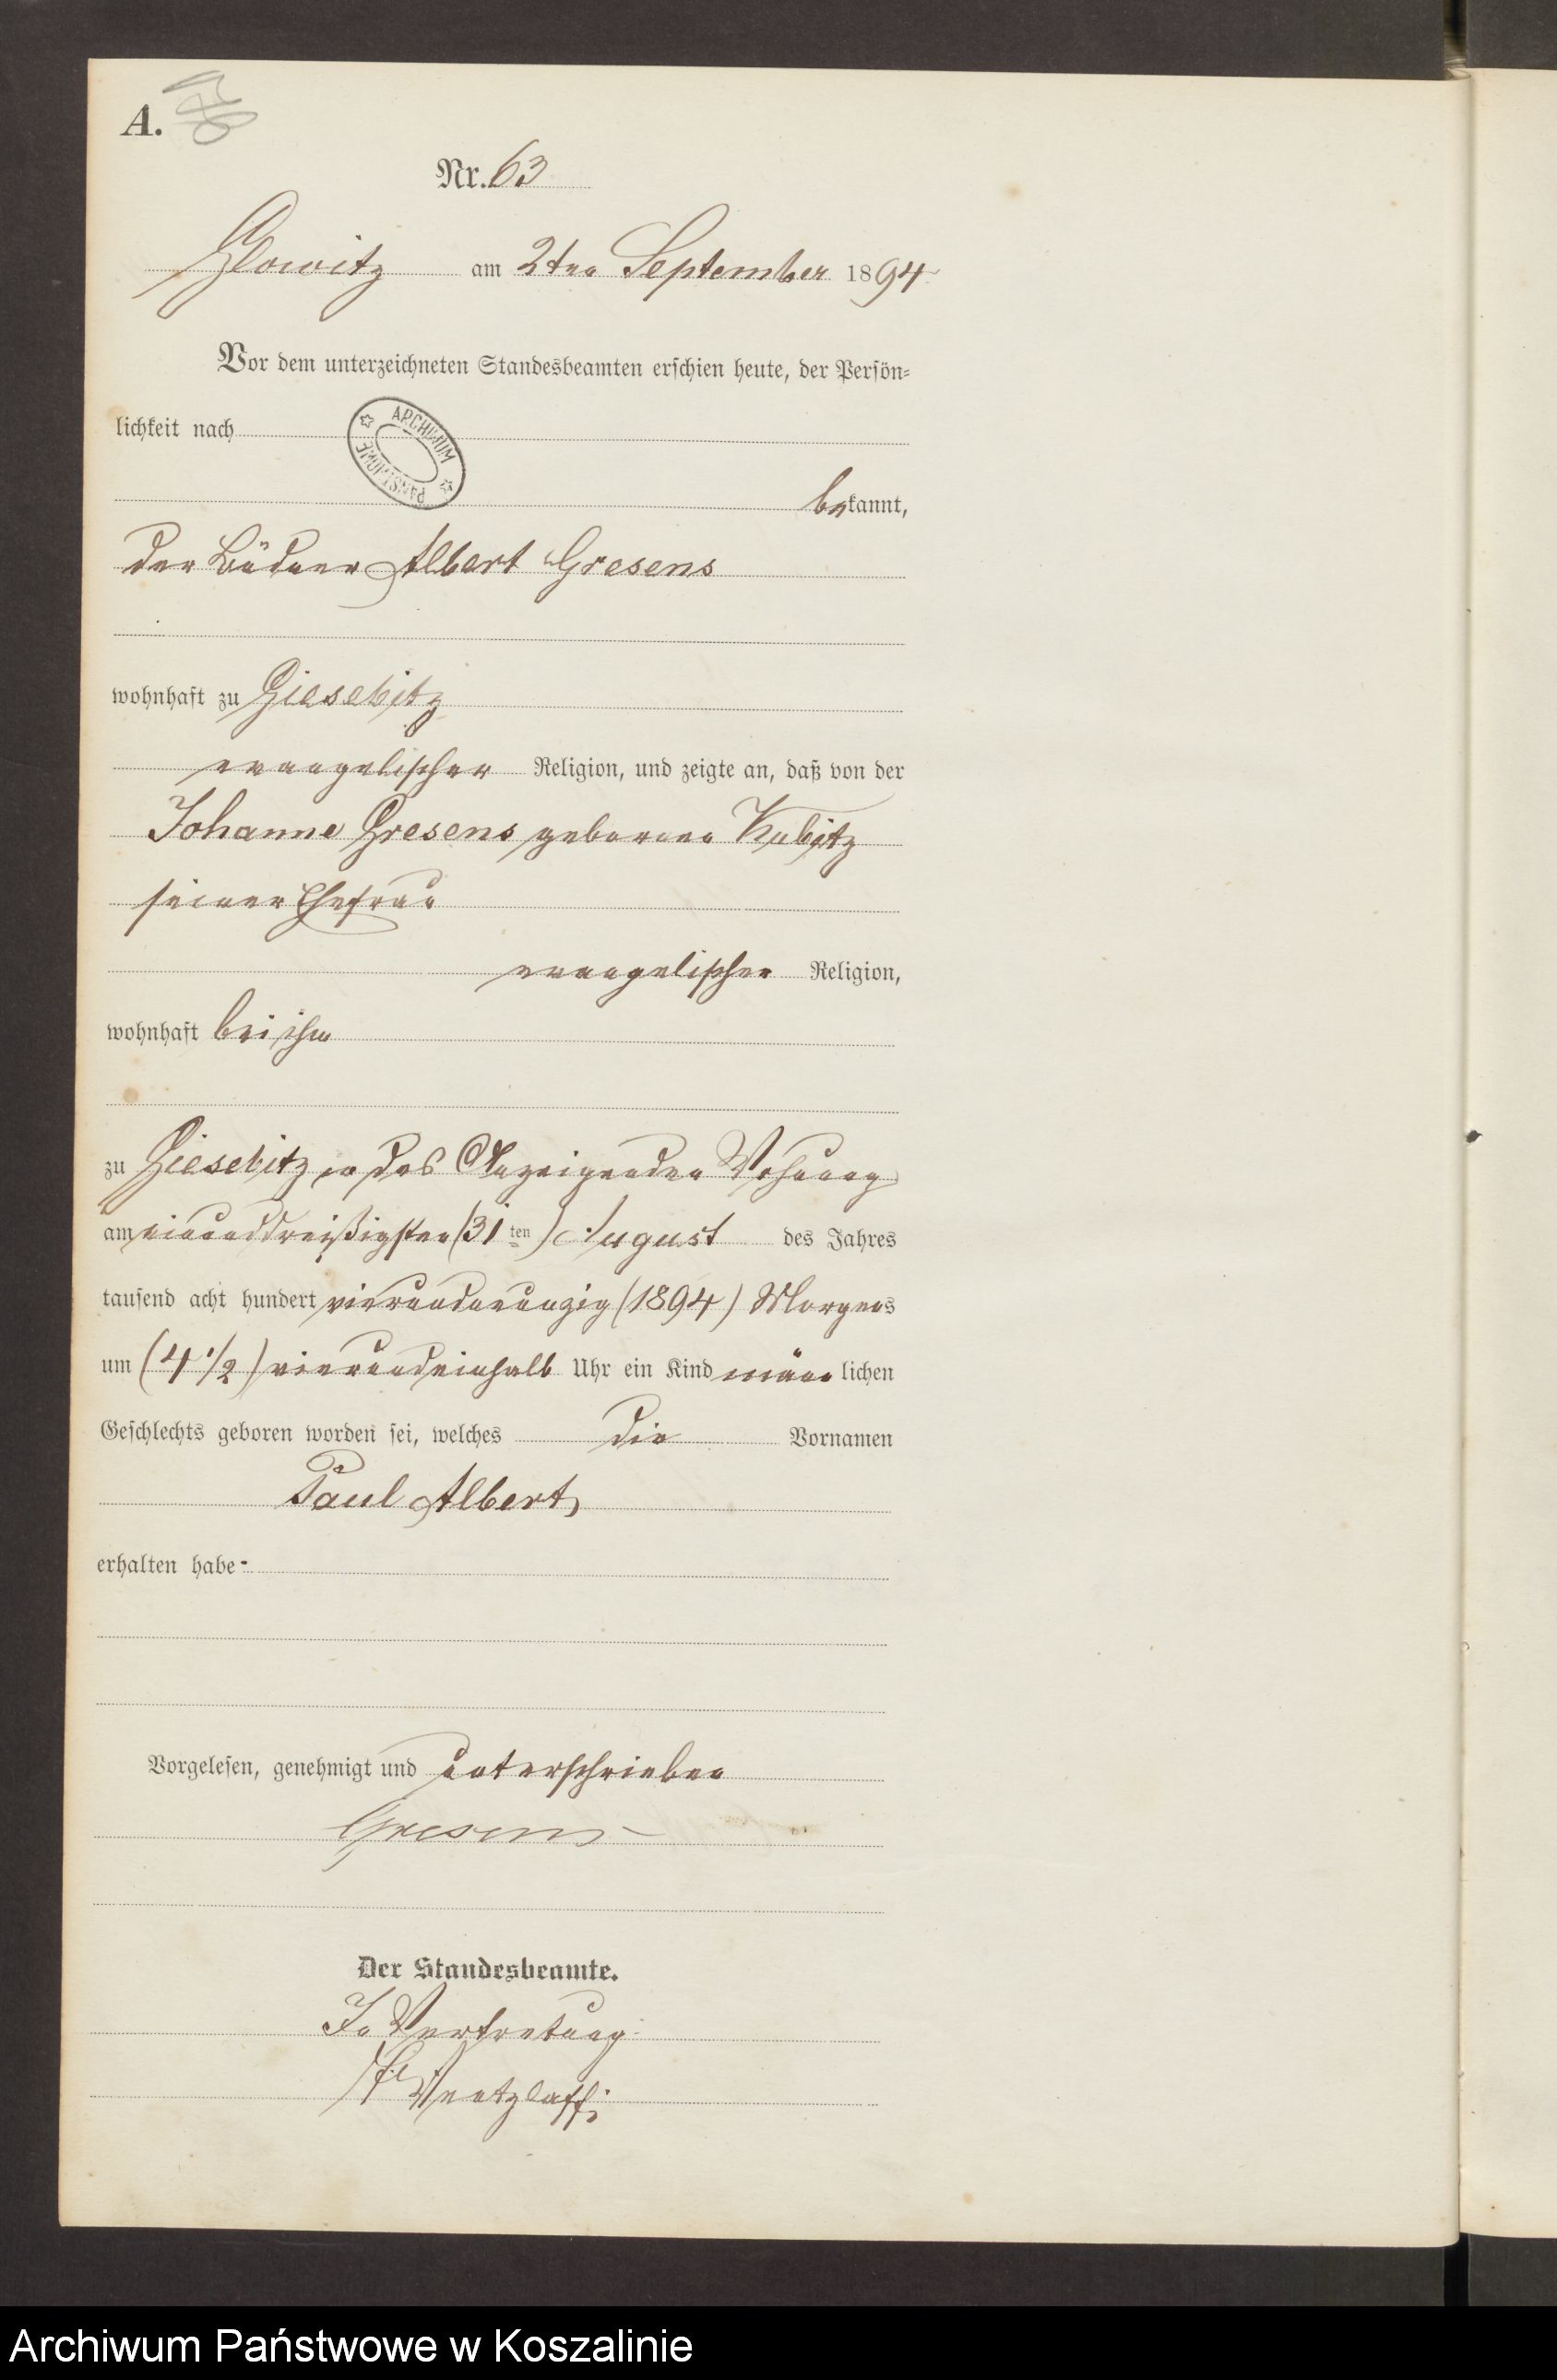 A.
Nr. 63
Glowitz am 2ten September 1894
Vor dem unterzeichneten Standesbeamten erschien heute, der Persön-
lichkeit nach
ARCHIWUM PAŃSTWOWE
bekannt,
der Büdner Albert Gresens
wohnhaft zu Giesebitz
evangelischer Religion, und zeigte an, daß von der
Johanne Gresens geborene Kubitz
seiner Ehefrau
evangelischer Religion,
wohnhaft bei ihm
zu Giesebitz in des Anzeigenden Wohnung
am einunddreißigsten (31ten) August des Jahres
tausend acht hundert vierundneunzig (1894) Morgens
um (4 1/2) vierundeinhalb Uhr ein Kind männlichen
Geschlechts geboren worden sei, welches die Vornamen
Paul Albert,
erhalten habe -
Vorgelesen, genehmigt und unterschrieben
Gresens
Der Standesbeamte.
In Vertretung
Wentzlaff
Archiwum Państwowe w Koszalinie